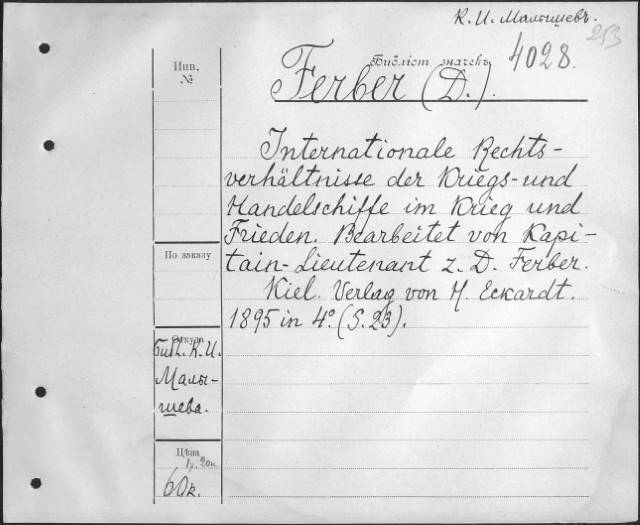 К. И. Малышевъ.
253
Инв.
№
Библіот. значекъ
4028.
Ferber (D.).
Internationale Rechts-
verhältnisse der Kriegs- und
Handelschiffe im Krieg und
Frieden. Bearbeitet von Kapi-
tain-Lieutenant z. D. Ferber.
Kiel. Verlag von H. Eckardt.
1895 in 4º. (S. 23).
По заказу
Откуда
Библ. К. И.
Малы-
шева.
Цѣна
1р. 20к.
60к.